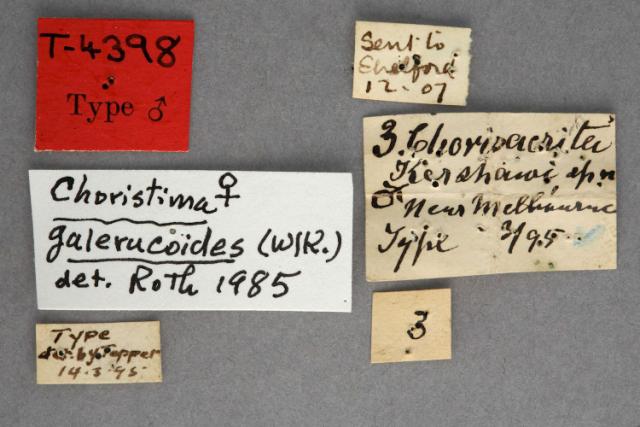 T-4398
Type ♂
Sent to
Shelford
12.07
3. Chorisacrita
Kershawi sp.n
♂ Near Melbourne
Type 3/95
Choristima ♀
galerucoides (Wlk.)
det. Roth 1985
Type
det. by Tepper
14.3.95
3